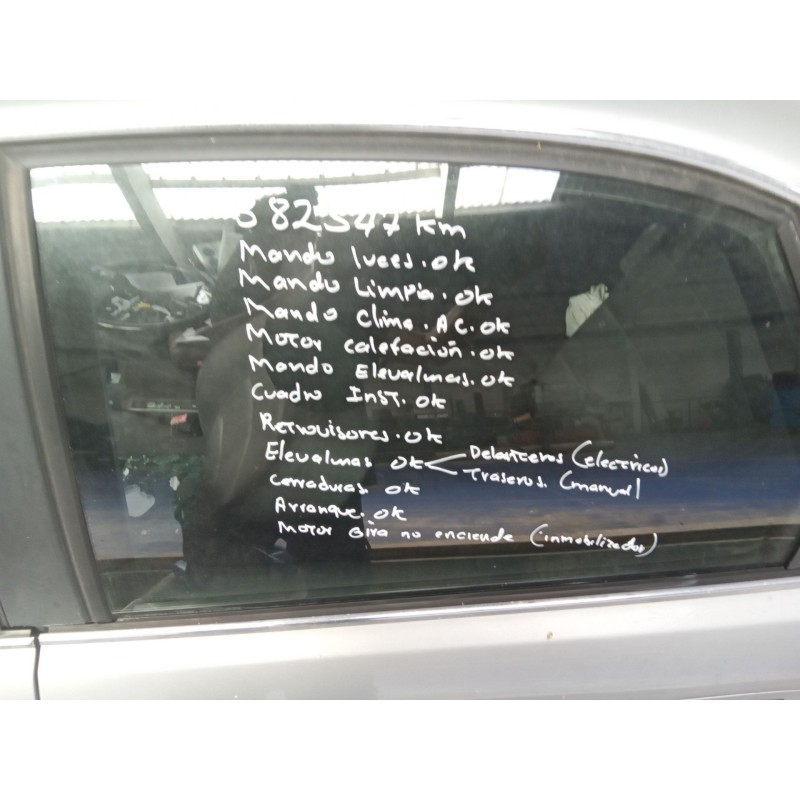 382547 km
Mando luces. ok
Mando Limpia. ok
Mando Clima. A.C. ok
Motor calefación. ok
Mando Elevalunas. ok
Cuadro Inst. ok
Retrovisores. ok
Elevalunas ok < Delanteros (electricos)
Traseros. (manual)
Cerraduras ok
Arranque. ok
Motor Gira no enciende (inmobilizador)